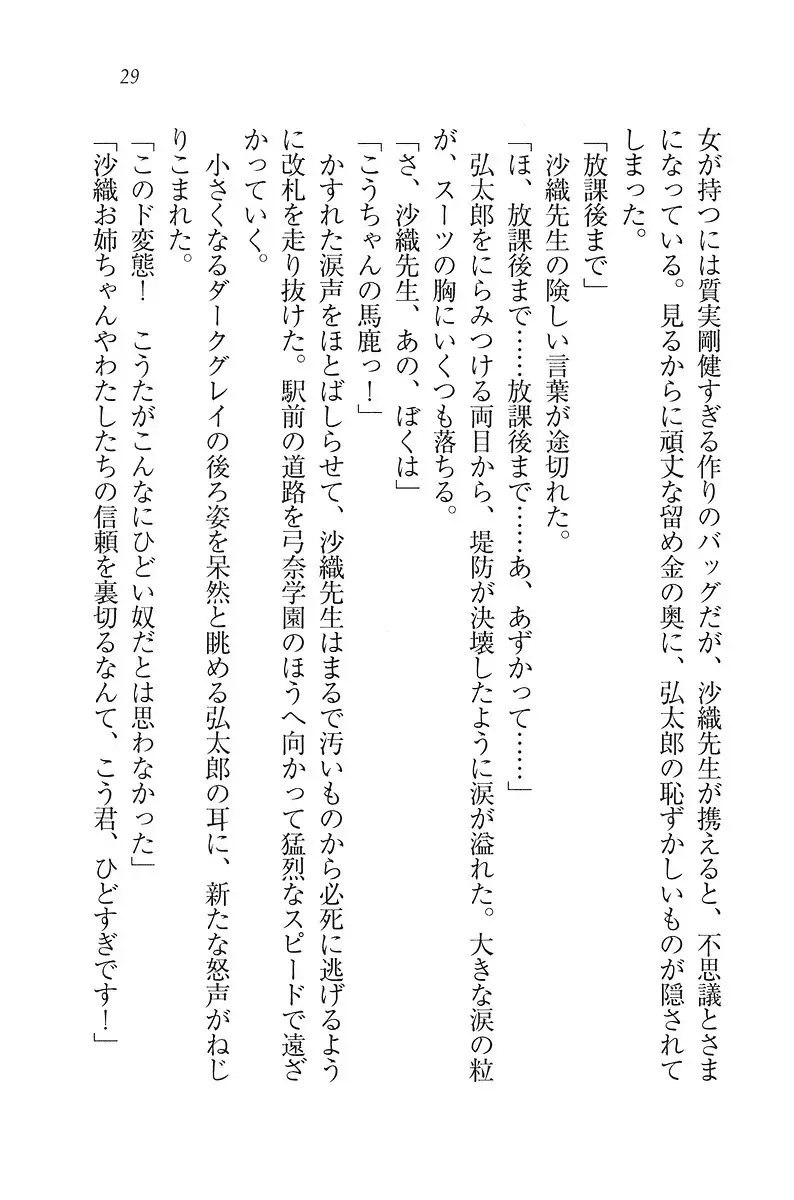 29
女が持つには質実剛健すぎる作りのバッグだが、沙織先生が携えると、不思議とさま
になっている。見るからに頑丈な留め金の奥に、弘太郎の恥ずかしいものが隠されて
しまった。
「放課後まで」
沙織先生の険しい言葉が途切れた。
「ほ、放課後まで……放課後まで……あ、あずかって……」
弘太郎をにらみつける両目から、堤防が決壊したように涙が溢れた。大きな涙の粒
が、スーツの胸にいくつも落ちる。
「さ、沙織先生、あの、ぼくは」
「こうちゃんの馬鹿っ！」
かすれた涙声をほとばしらせて、沙織先生はまるで汚いものから必死に逃げるよう
に改札を走り抜けた。駅前の道路を弓奈学園のほうへ向かって猛烈なスピードで遠ざ
かっていく。
小さくなるダークグレイの後ろ姿を呆然と眺める弘太郎の耳に、新たな怒声がねじ
りこまれた。
「このド変態！　こうたがこんなにひどい奴だとは思わなかった」
「沙織お姉ちゃんやわたしたちの信頼を裏切るなんて、こう君、ひどすぎです！」